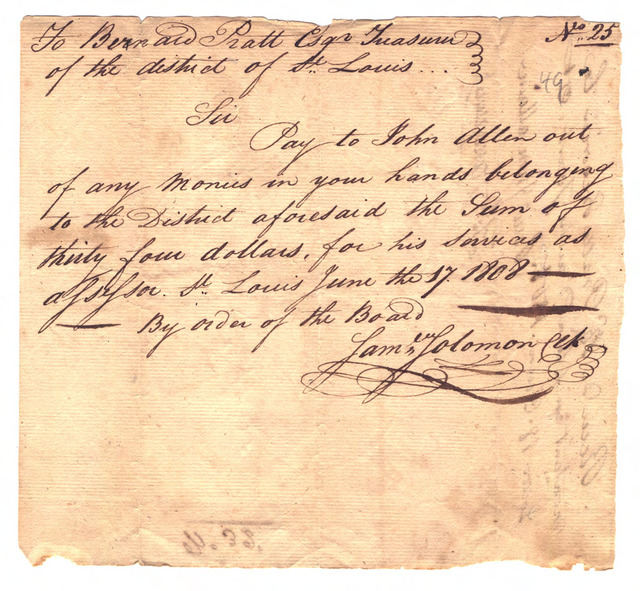 To Bernard Pratt Esqr Treasurer No. 25
of the district of St. Louis ...
49
Sir
Pay to John Allen out
of any monies in your hands belonging
to the District aforesaid the Sum of
thirty four dollars, for his services as
assessor. St. Louis June the 17. 1808
By order of the Board
Saml. Solomon Clk